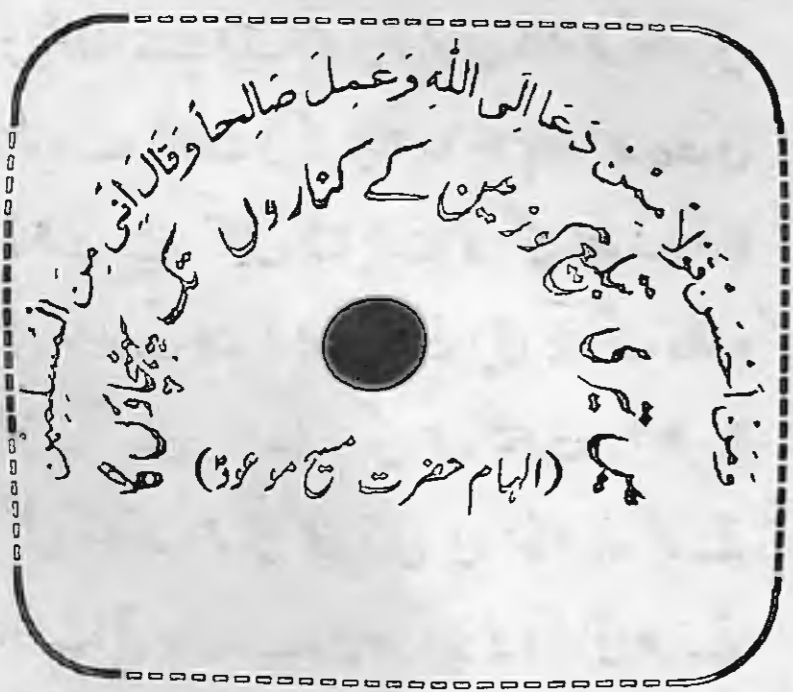 وَمَنْ اَحْسَنُ قَوْلًا مِمَّنْ دَعَا اِلَى اللّٰهِ وَعَمِلَ صَالِحاً وَّقَالَ اِنَّنِیْ مِنَ الْمُسْلِمِیْنَ
میں تیری تبلیغ کو زمین کے کناروں تک پہنچاؤں گا
(الہام حضرت مسیح موعودؑ)